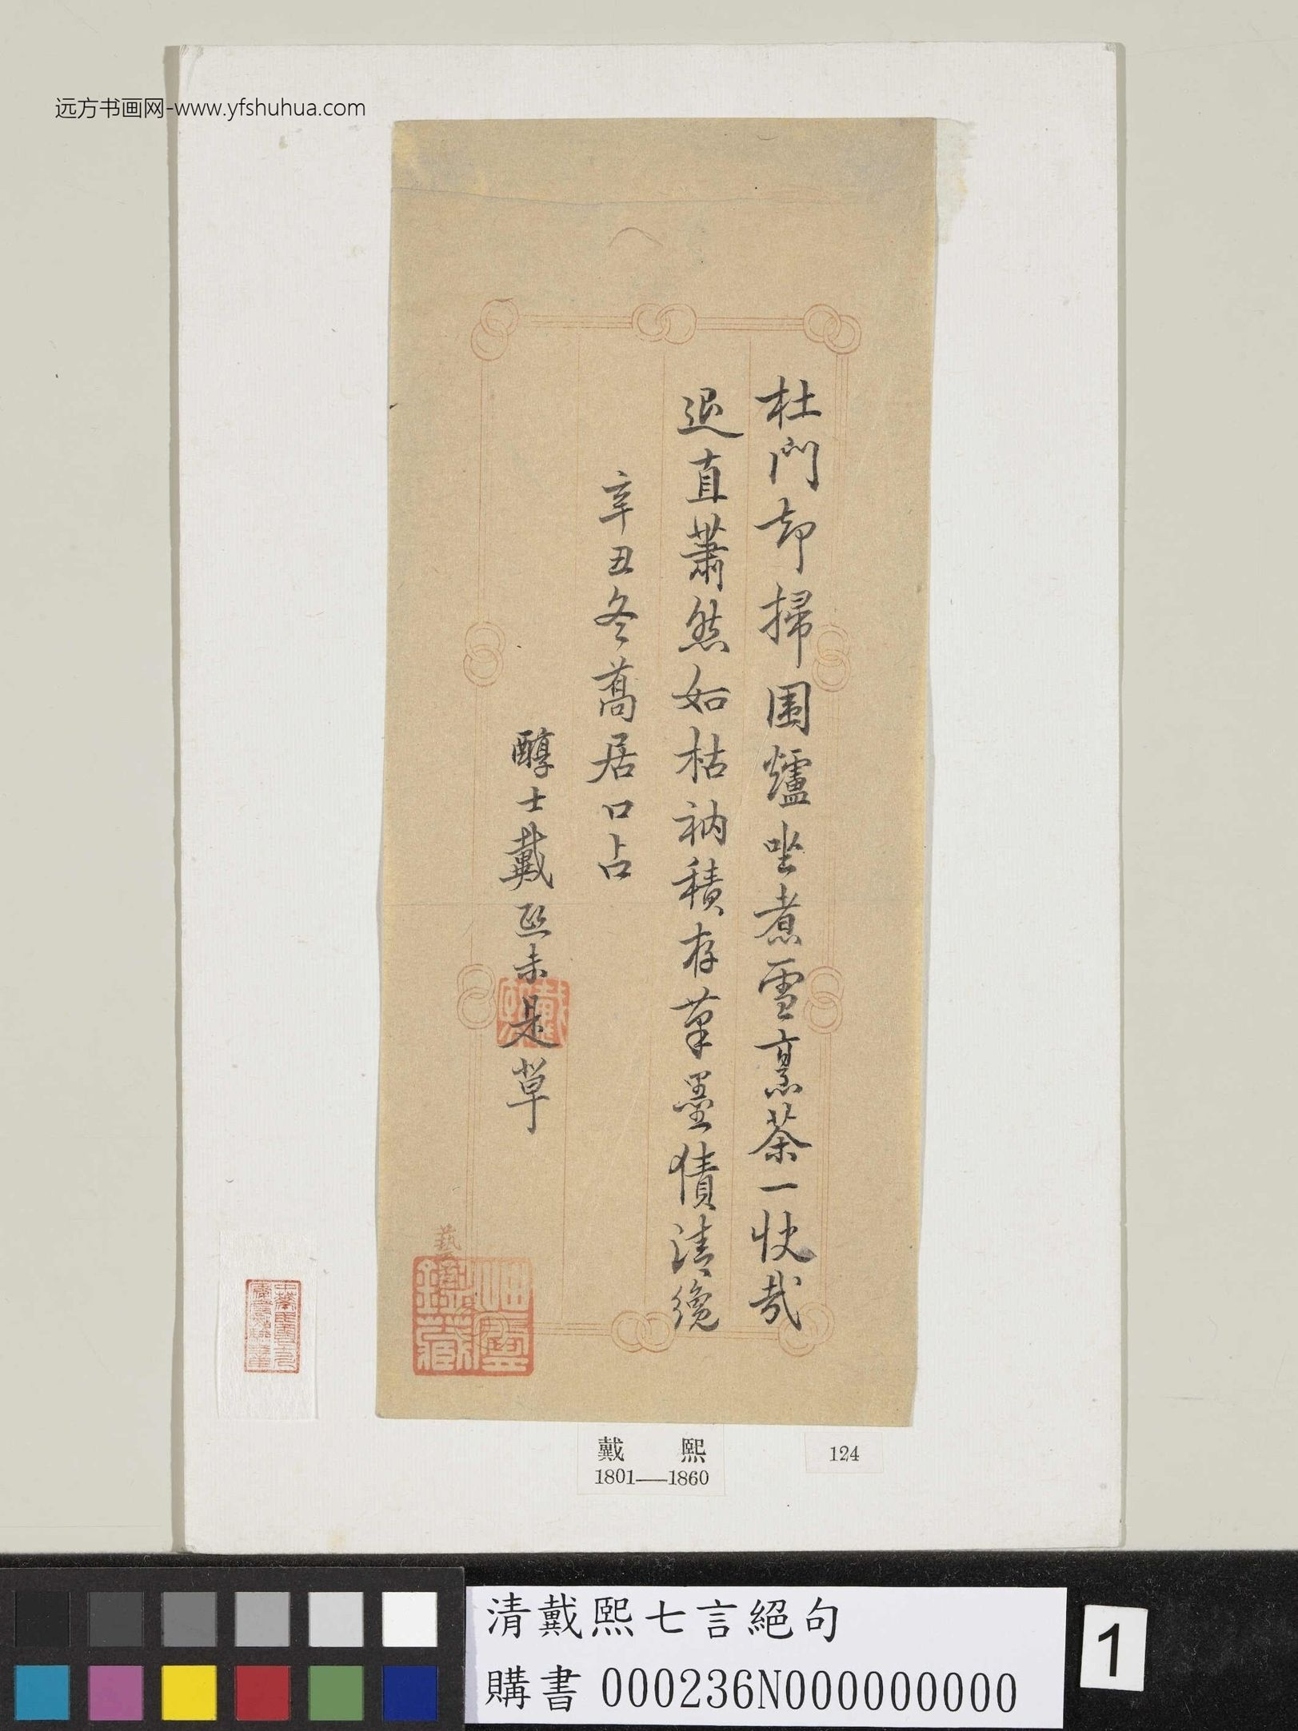 远方书画网-www.yfshuhua.com
杜門却掃围爐坐煮雪烹茶一快哉
退直蕭然如枯衲積存筆墨債清纔
辛丑冬蒿居口占
醇士戴熙未是草
戴熙
藝
鑑藏
戴熙
1801—1860
124
清戴熙七言絕句
購書000236N000000000
1